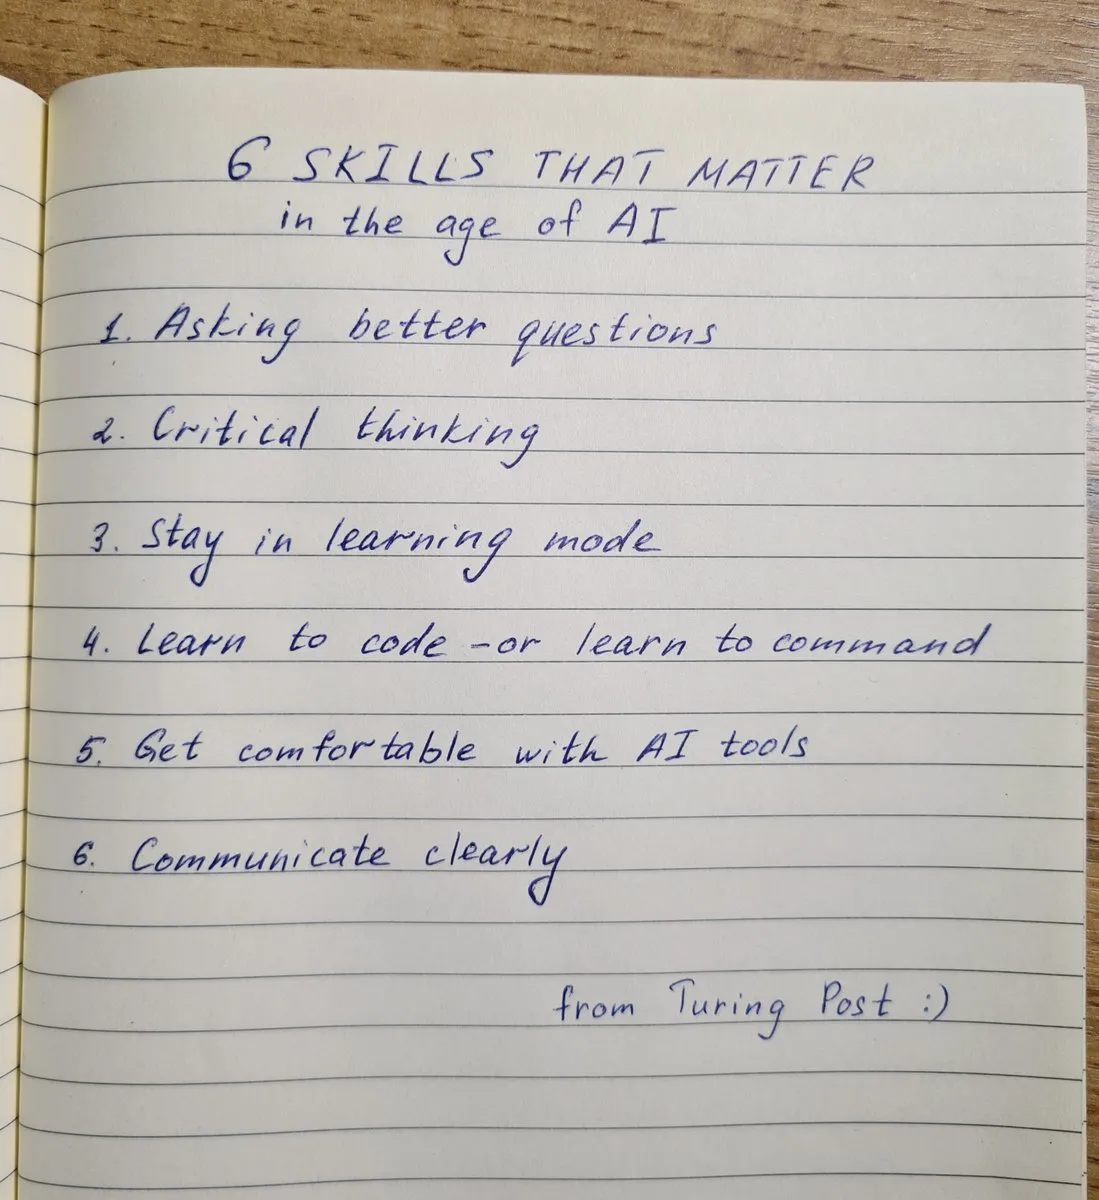 6 SKILLS THAT MATTER
in the age of AI
1. Asking better questions
2. Critical thinking
3. Stay in learning mode
4. Learn to code - or learn to command
5. Get comfortable with AI tools
6. Communicate clearly
from Turing Post :)